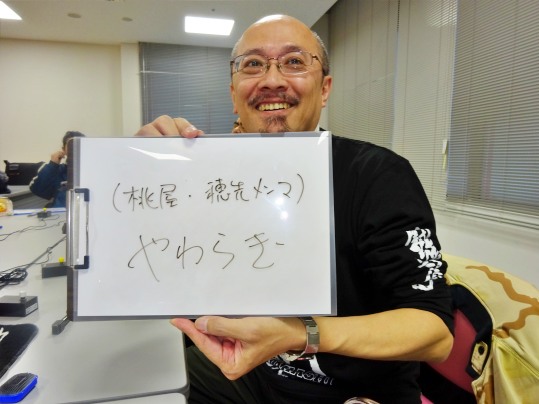 (桃屋・穂先メンマ)
やわらぎ